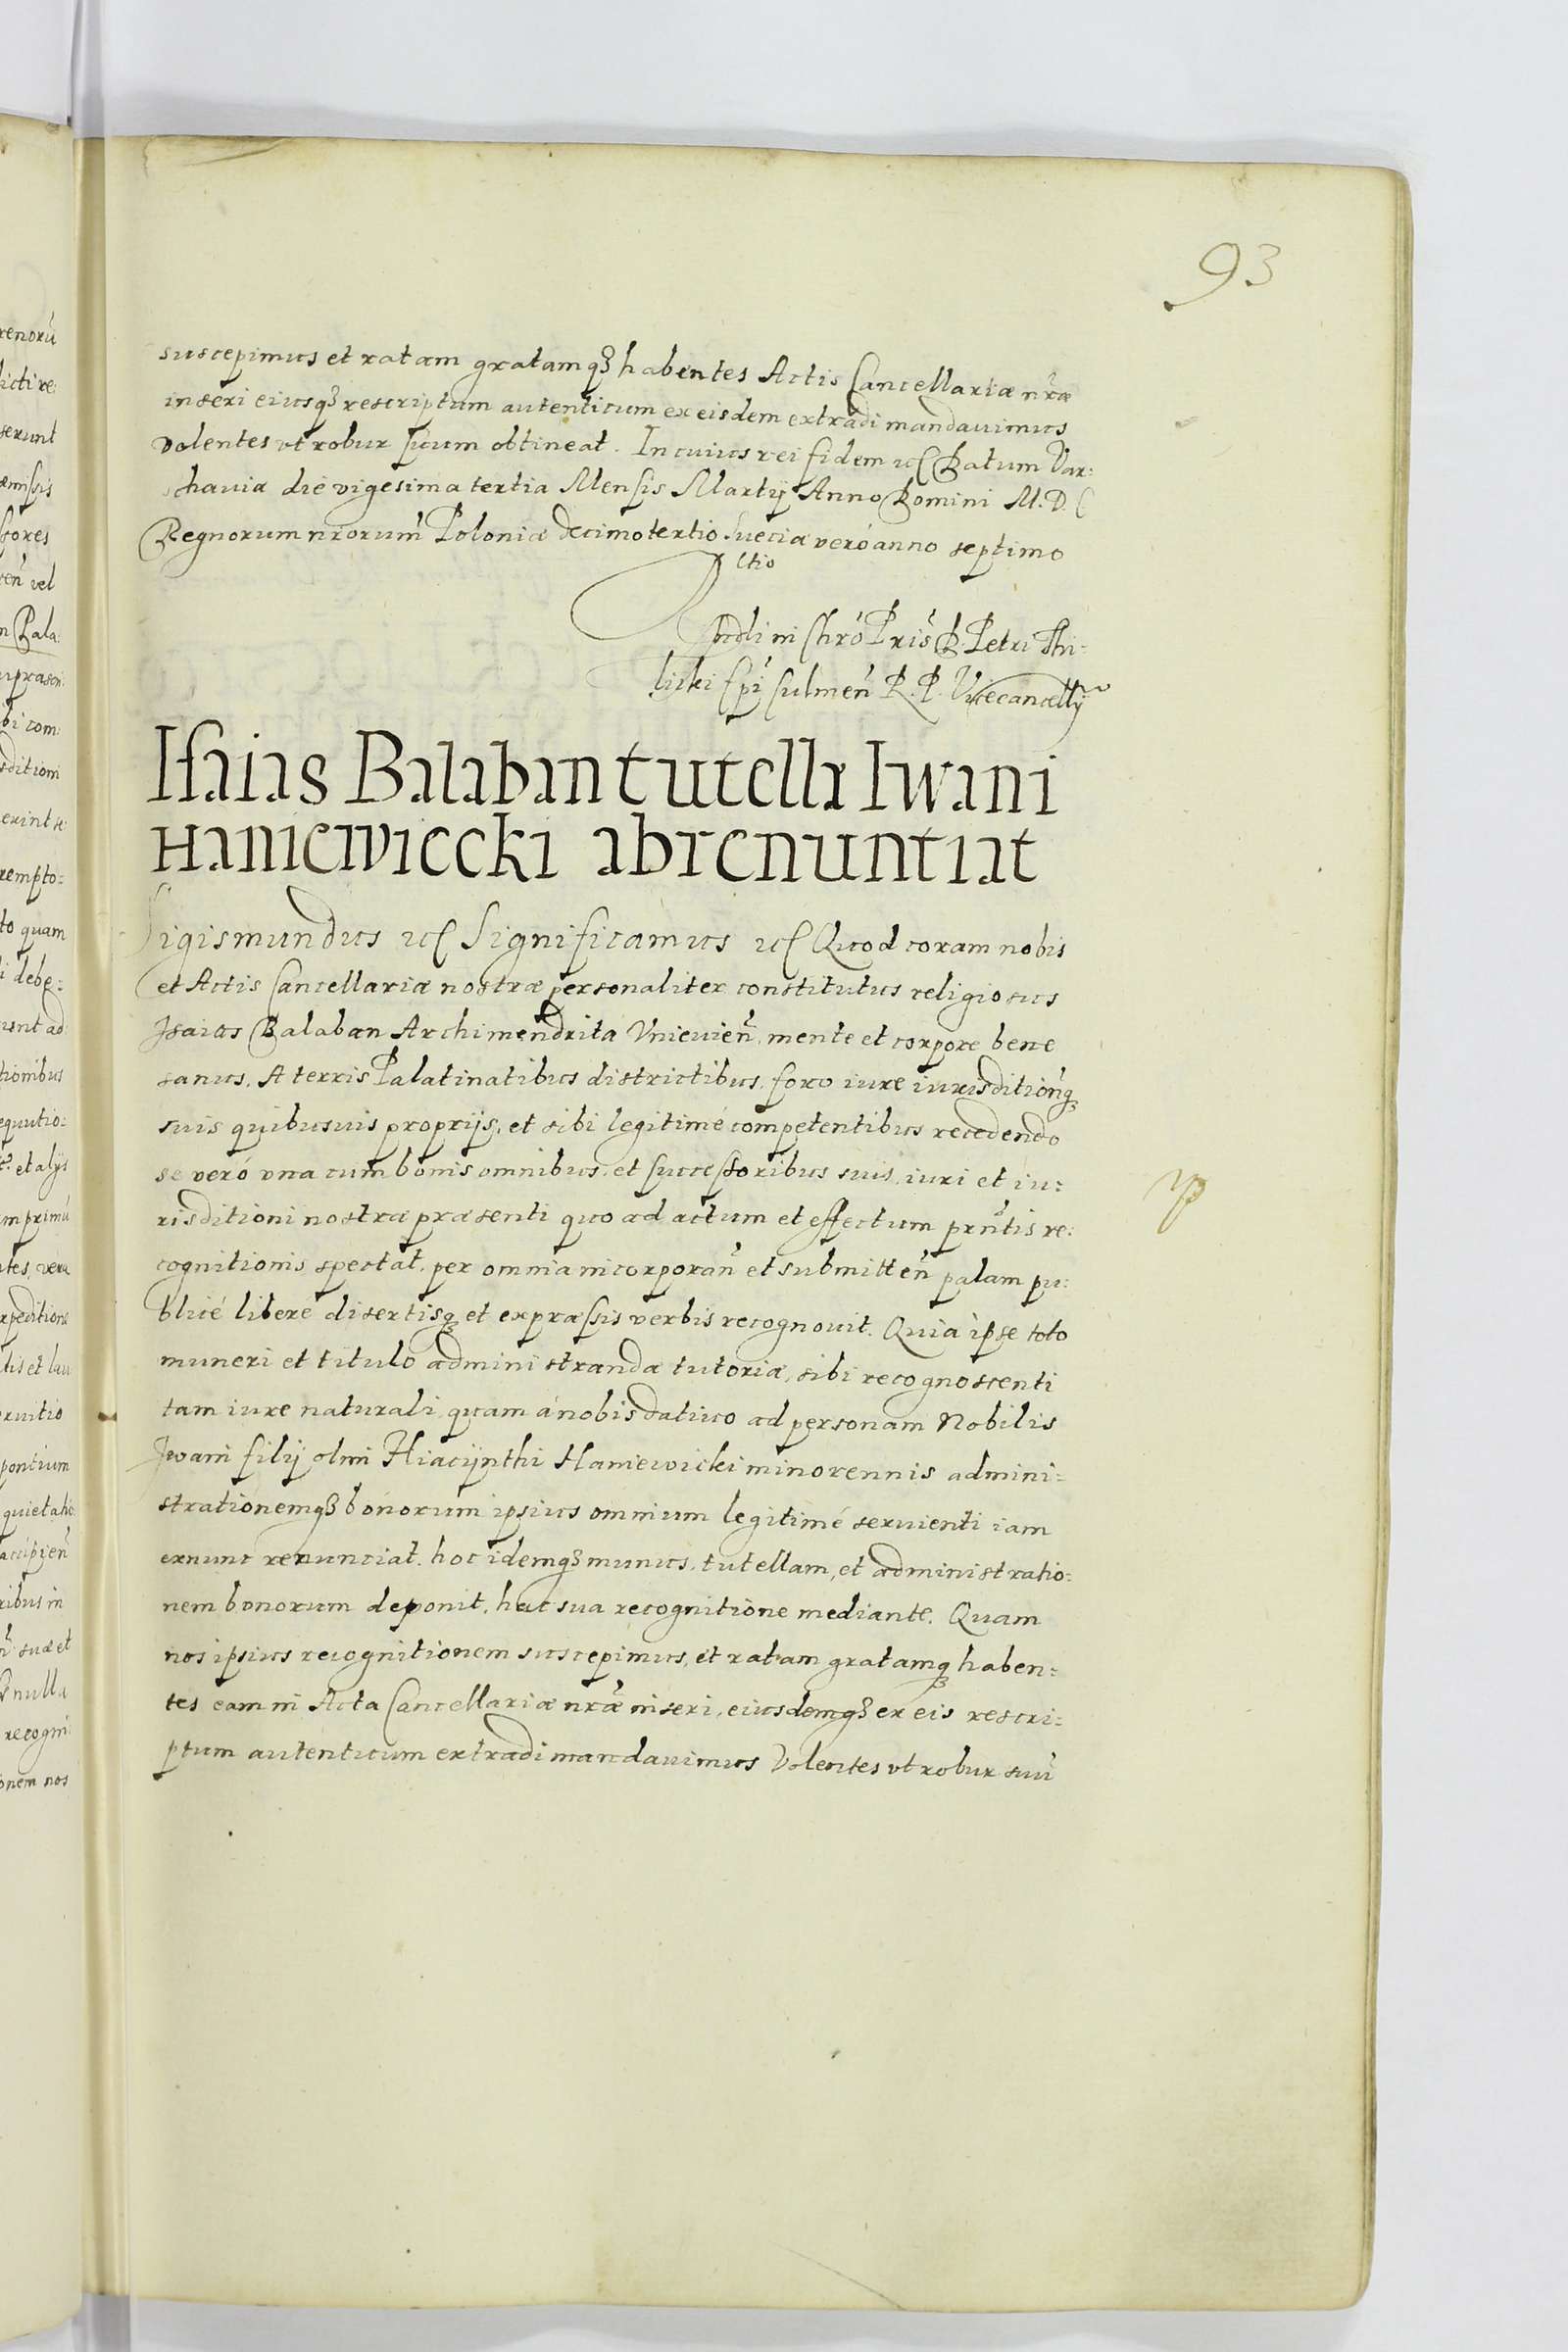 93
suscepimus et ratam gratamq3 habentes Actis Cancellariæ nr̃æ
inseri eiusq3 rescriptum autenticum ex eisdem extradi mandauimus
volentes vt robur suum obtineat. In cuius rei fidem etc Datum Var:
shauiæ die vigesima tertia Mensis Martij Anno Domini M.D.C
Regnorum nrorum̃ Poloniæ decimotertio Sueciæ veró anno septimo
ctio
Rñdi in Chrõ Pris̃ D. Petri Thi-
licki Ep̃i Culmeñ R.P. Vicecancellỹ
Isaias Balaban tutellæ Iwani
Haniewiecki abrenuntiat
Sigismundus etc Significamus etc Quod coram nobis
et Actis Cancellariæ nostræ personaliter constitutus religiosus
Isaias Balaban Archimendrita Vnieuieñ, mente et corpore bene
sanus, A terris Palatinatibus districtibus, foro iure iurisditionq̃
suis quibusuis proprijs, et sibi legitimé competentibus recedendo
se veró vna cum bonis omnibus, et successoribus suis, iuri et iu:
risditioni nostræ præsenti quo ad actum et effectum prñtis re:
cognitionis spectat, per omnia incorporañ et submitteñ palam pu:
blicé libere disertisq et expræssis verbis recognouit. Quia ipse toto
muneri et titulo administrandæ tutoriæ, sibi recognoscenti
tam iure naturali, quam á nobis datiuo ad personam Nobilis
Iwani filij olim Hiacÿnthi Haniewicki minorennis admini:
strationemq3 bonorum ipsius omnium legitimé seruienti iam
exnunc renunciat, hoc idemq3 munus, tutellam, et administratio:
nem bonorum deponit, hac sua recognitione mediante. Quam
nos ipsius recognitionem suscepimus, et ratam gratamq haben:
tes eam in Acta Cancellariæ nrãe inseri, eiusdemq3 ex eis rescri:
ptum autenticum extradi mandauimus Volentes vt robur suũ